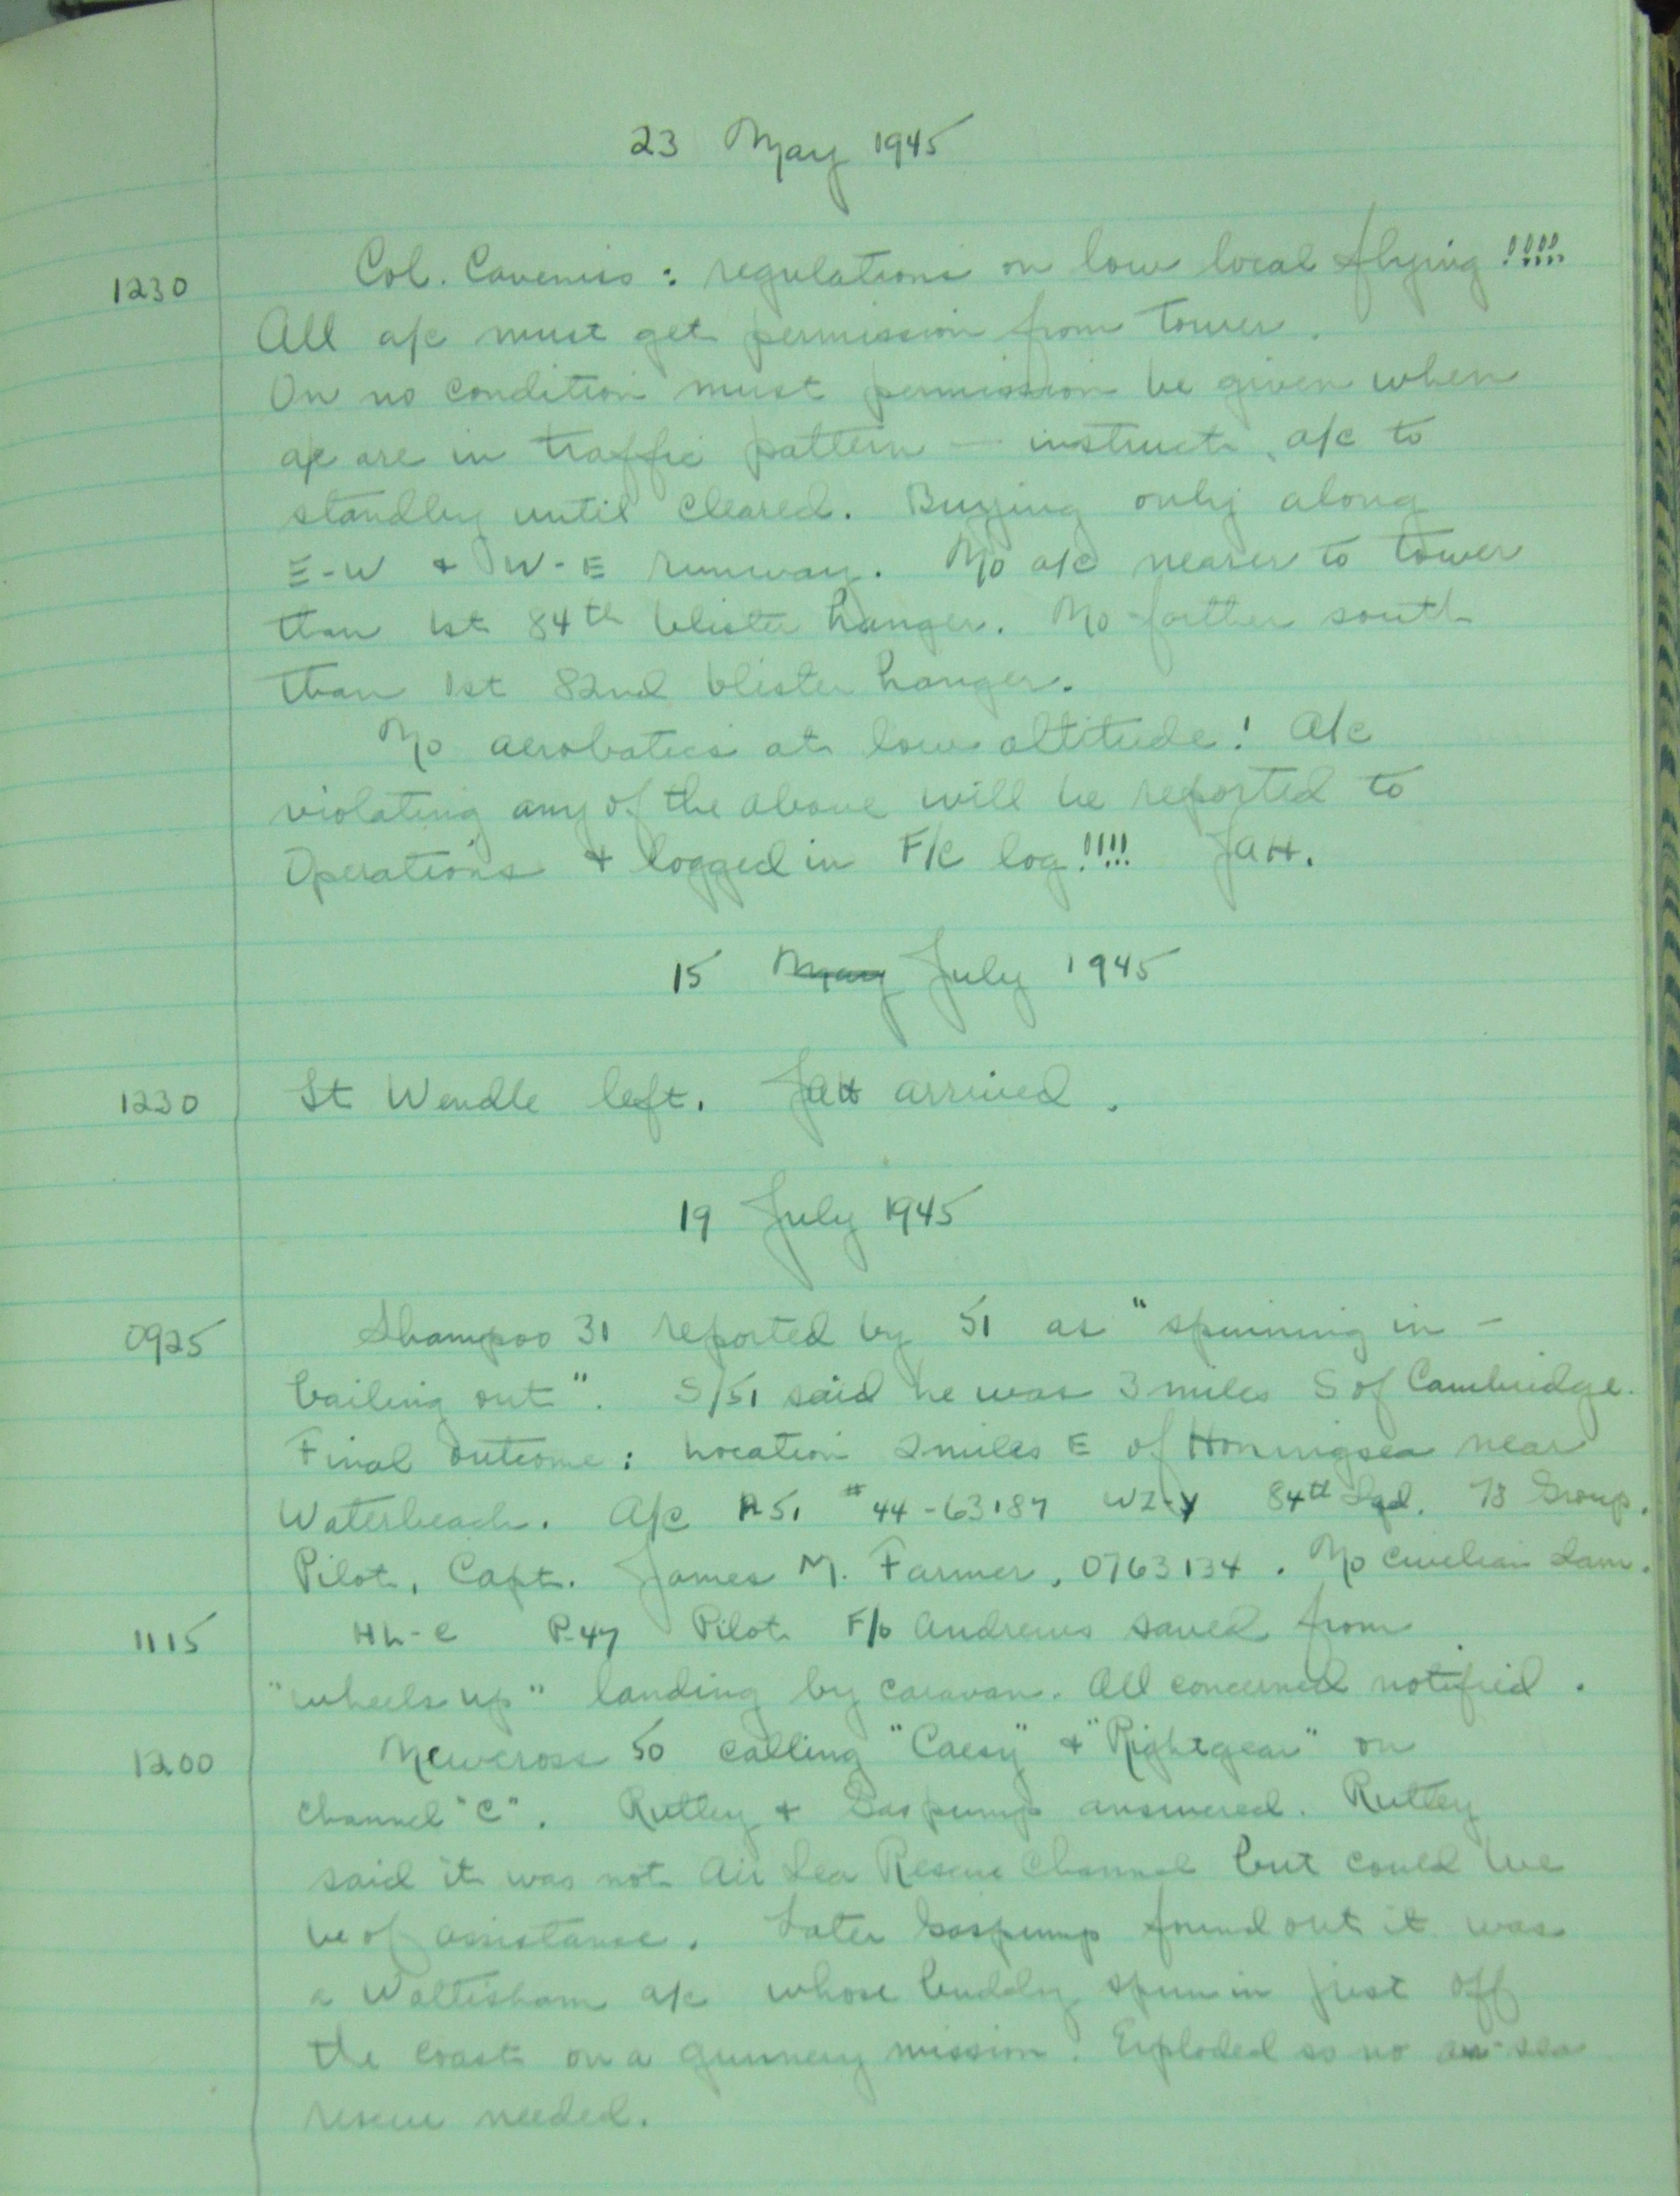 23 May 1945
1230 Col. Caveniss : regulations on low local flying !!!!!
All a/c must get permission from tower.
On no condition must permission be given when
a/c are in traffic pattern — instruct a/c to
standby until cleared. Buzzing only along
E-W + W-E runway. No a/c nearer to tower
than 1st 84th blister hanger. No farther south
than 1st 82nd blister hanger.
No aerobatics at low altitude! A/c
violating any of the above will be reported to
Operations + logged in F/C log!!!!! JAH.
15 May July 1945
1230 St Wendle left. JAH arrived.
19 July 1945
0925 Shampoo 31 reported by 51 as "spinning in —
bailing out". S/51 said he was 3 miles S of Cambridge.
Final outcome : Location 2 miles E of Horningsea near
Waterbeach. A/c P51 #44-63187 WZ-Y 84th Sqd. 78 Group.
Pilot, Capt. James M. Farmer, 0763134. No civilian dam.
1115 HL-C P-47 Pilot F/O Andrews saved from
"wheels up" landing by caravan. All concerned notified.
1200 Newcross 50 calling "Caesy" + "Rightgear" on
channel "C". Ruttey + Gaspump answered. Ruttey
said it was not Air Sea Rescue Channel but could we
be of assistance. Later Gaspump found out it was
a Wattisham a/c whose buddy spun in just off
the coast on a gunnery mission. Exploded so no air-sea
rescue needed.